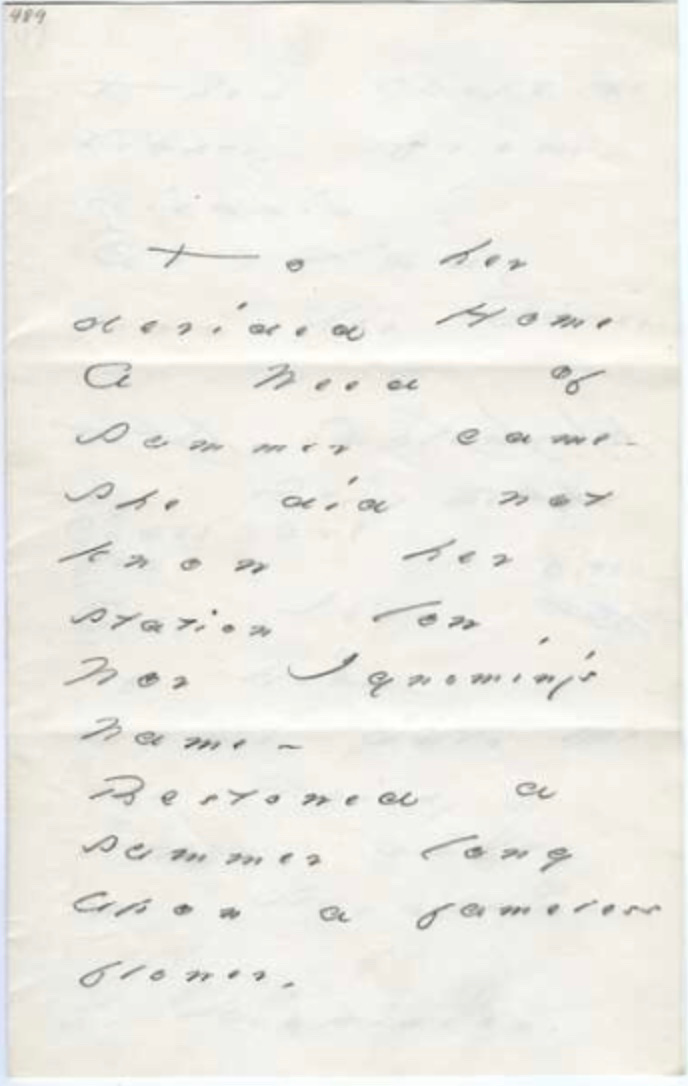 489
To her
derided Home
A Weed of
Summer came -
She did not
know her
station low
Nor Ignominy's
Name -
Bestowed a
summer long
Upon a fameless
flower.